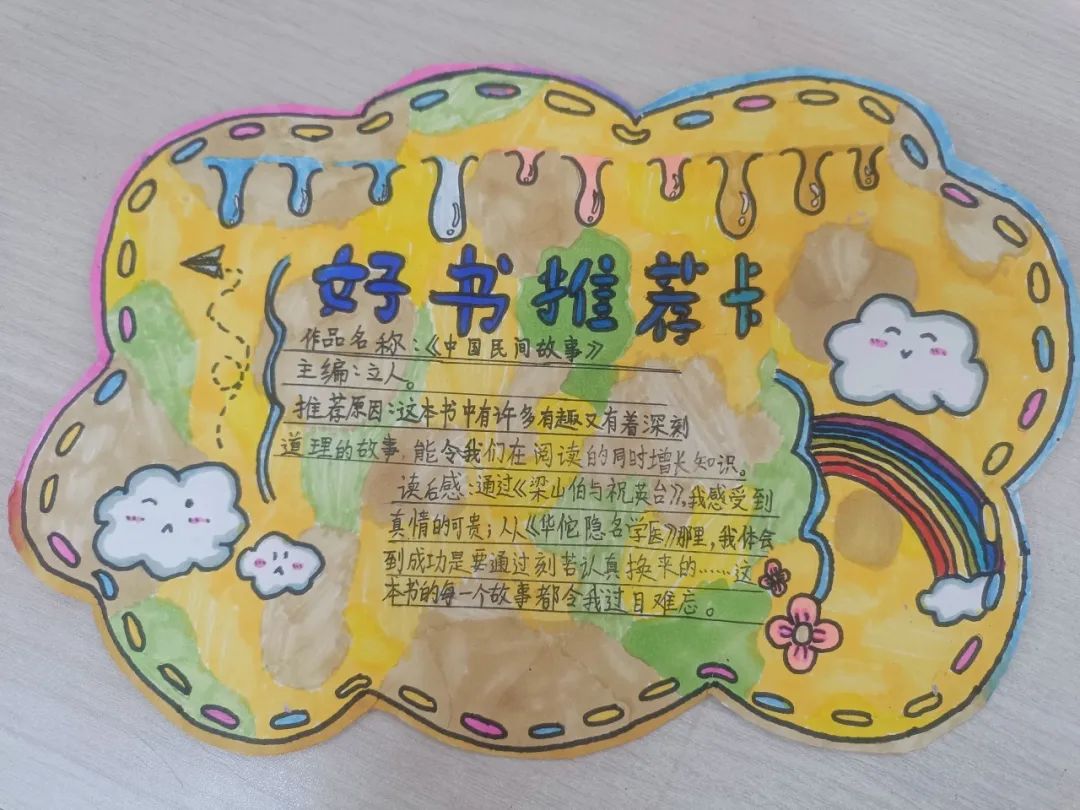 好书推荐卡
作品名称:《中国民间故事》
主编:立人。
推荐原因:这本书中有许多有趣又有着深刻
道理的故事,能令我们在阅读的同时增长知识。
读后感:通过《梁山伯与祝英台》,我感受到
真情的可贵;从《华佗隐名学医》那里,我体会
到成功是要通过刻苦认真换来的……这
本书的每一个故事都令我过目难忘。